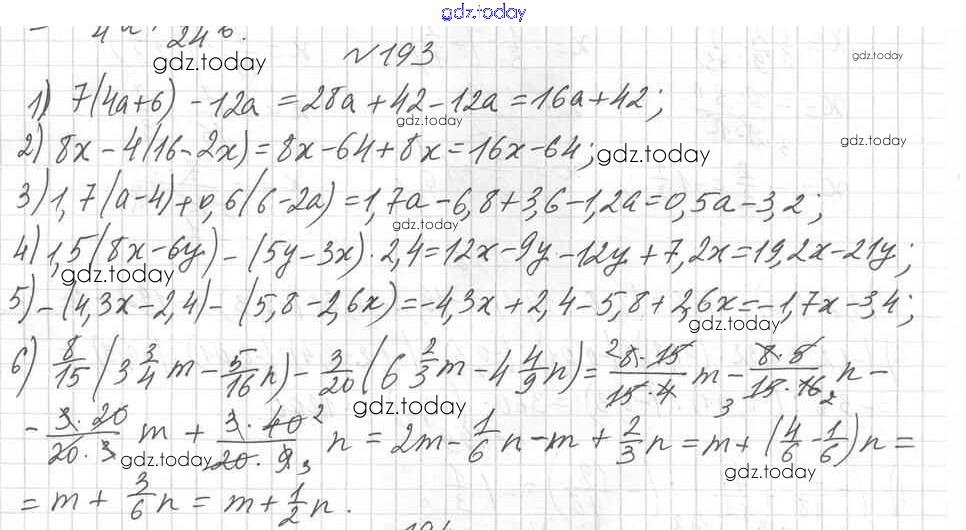 gdz.today
gdz.today
№193
gdz.today
1) 7(4a+6) - 12a = 28a + 42 - 12a = 16a + 42;
gdz.today
gdz.today
2) 8x - 4(16 - 2x) = 8x - 64 + 8x = 16x - 64;
gdz.today
3) 1,7(a - 4) + 0,6(6 - 2a) = 1,7a - 6,8 + 3,6 - 1,2a = 0,5a - 3,2;
gdz.today
4) 1,5(8x - 6y) - (5y - 3x) · 2,4 = 12x - 9y - 12y + 7,2x = 19,2x - 21y;
gdz.today
5) -(4,3x - 2,4) - (5,8 - 2,6x) = -4,3x + 2,4 - 5,8 + 2,6x = -1,7x - 3,4;
gdz.today
6) 8/15 (3 3/4 m - 5/16 n) - 3/20 (6 2/3 m - 4 4/9 n) = 2 8·15/15·4 m - 8·5/3 15·16 2 n -
gdz.today
- 3·20/20·3 m + 3·40 2/20·9 3 n = 2m - 1/6 n - m + 2/3 n = m + (4/6 - 1/6) n =
gdz.today
gdz.today
= m + 3/6 n = m + 1/2 n.